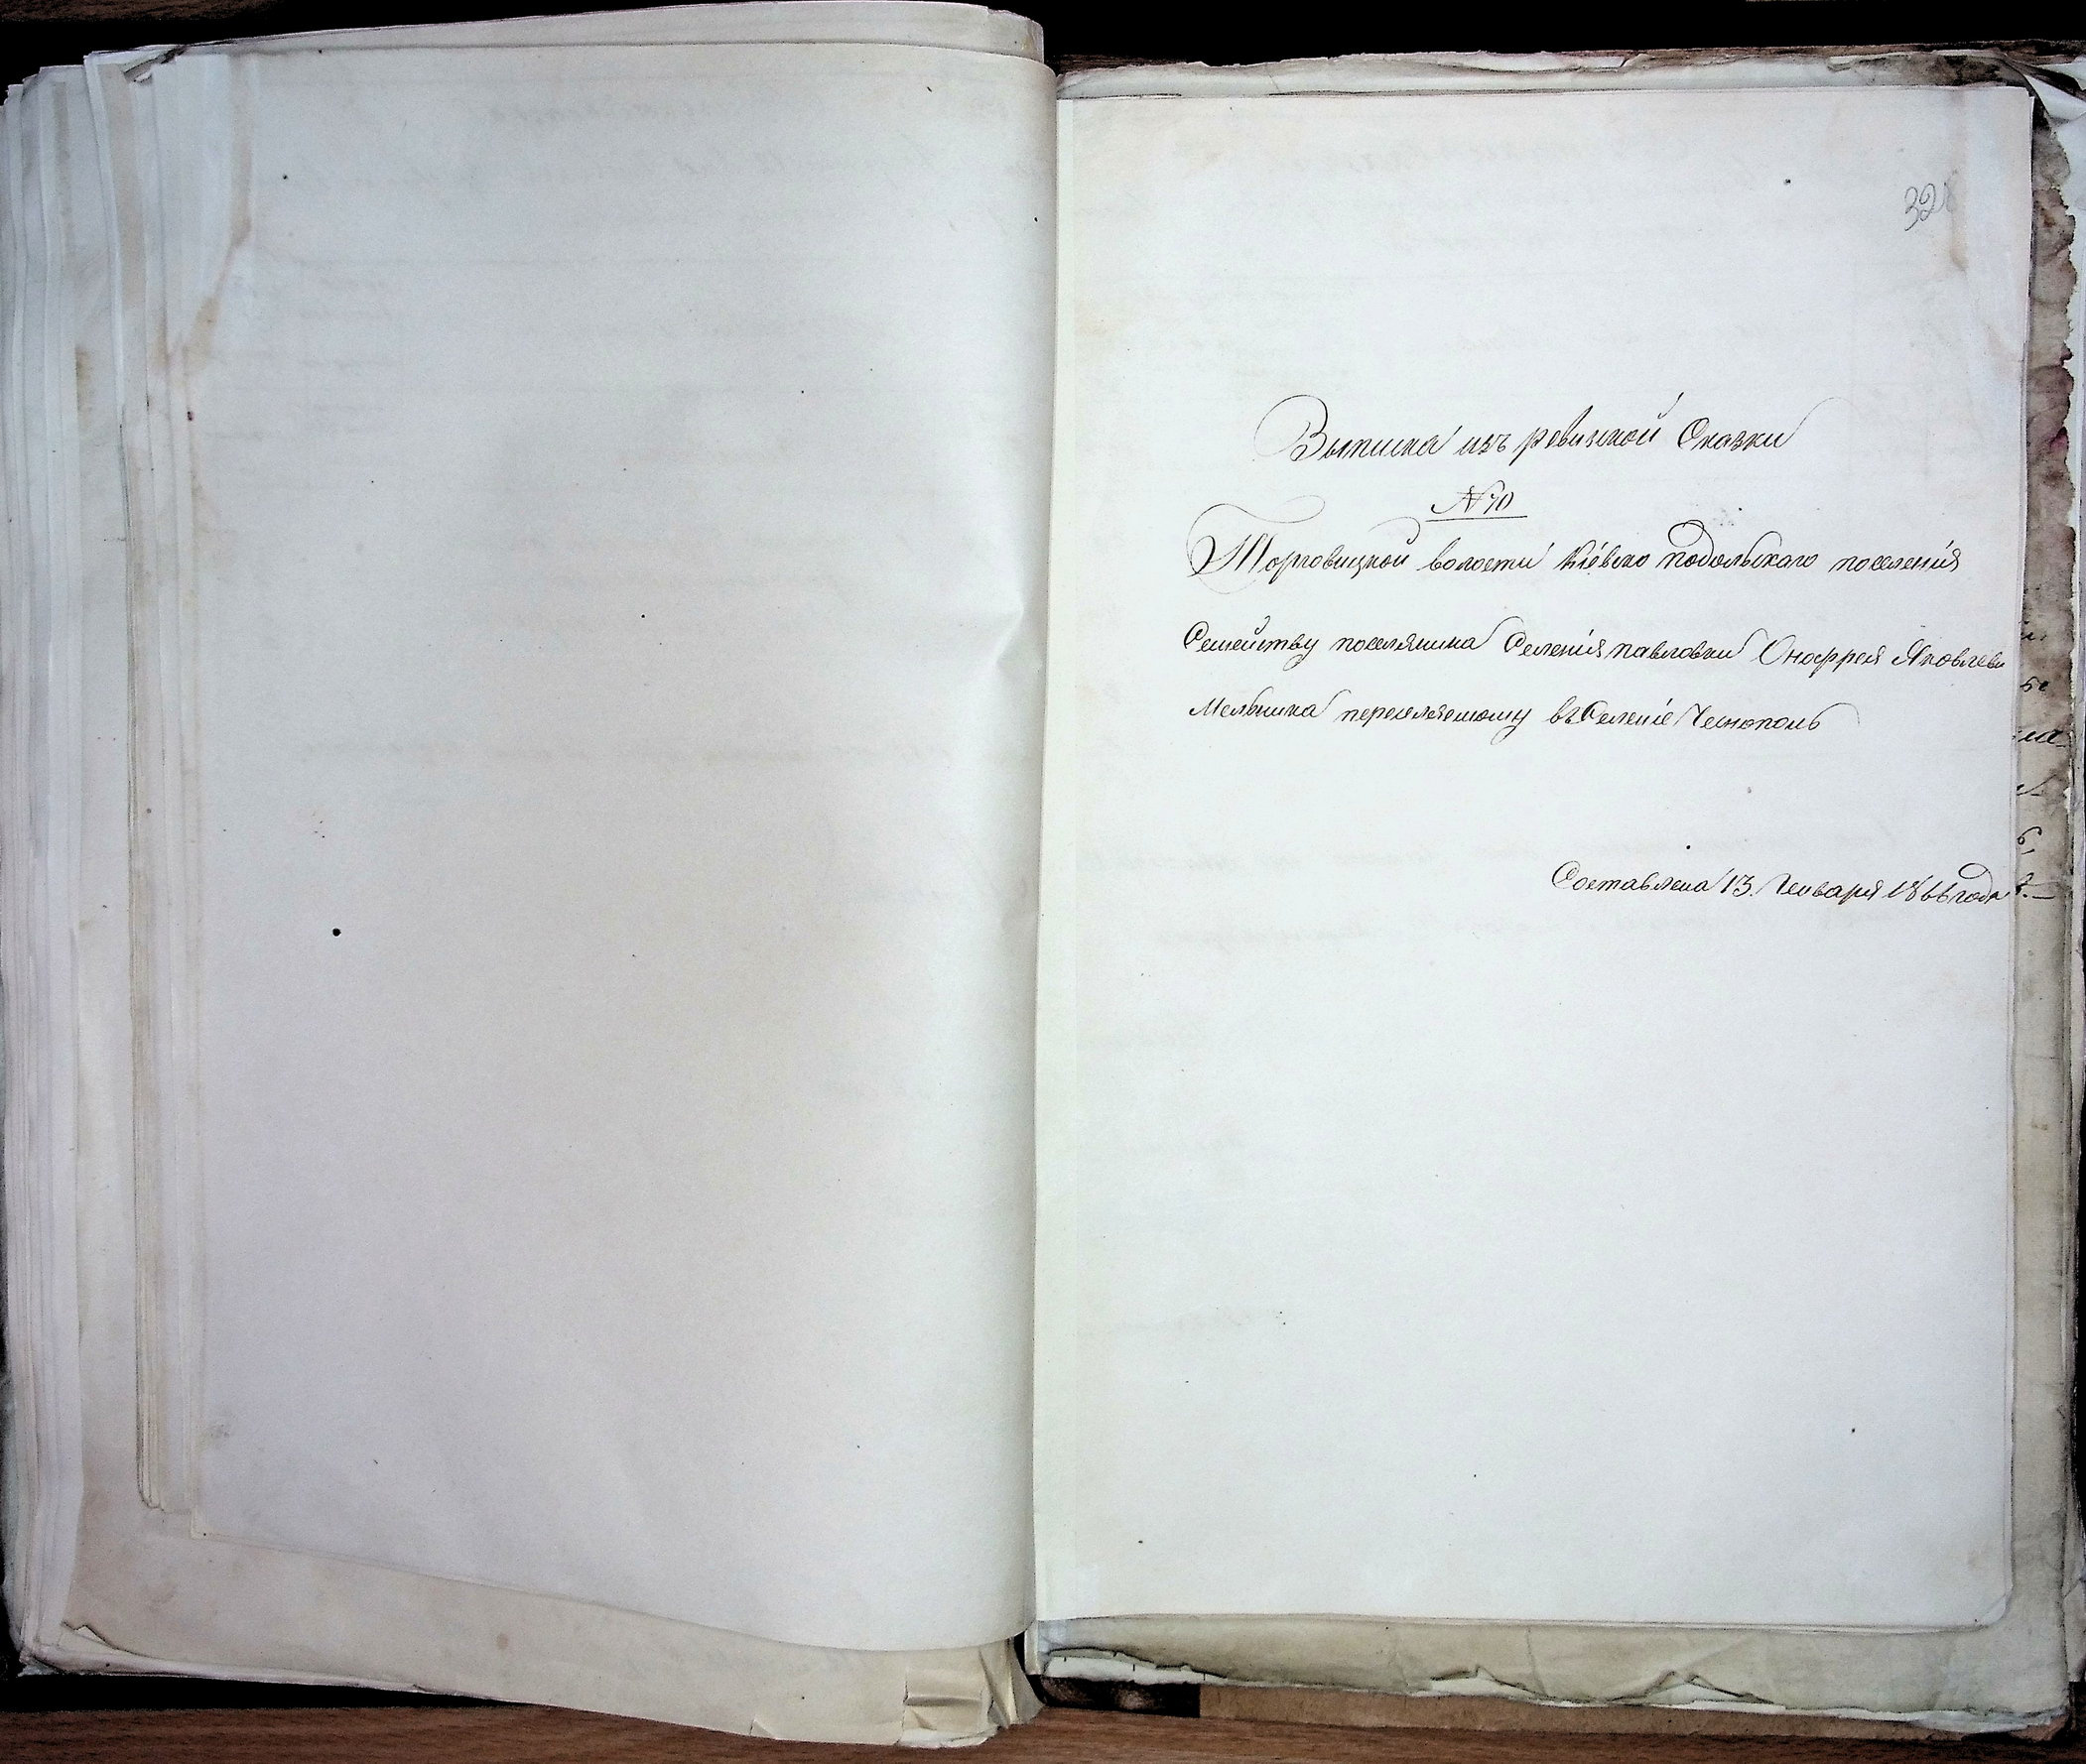 328
Выписка изъ ревизской Сказки
№ 70
Торговицкой волости Кіевско подольскаго поселенія
Семейству поселянина Селенія павловки Онофрея Яковлева
Мельника переселяемому въ Селеніе Чеснополь
Составлена 13 Генваря 1866 года